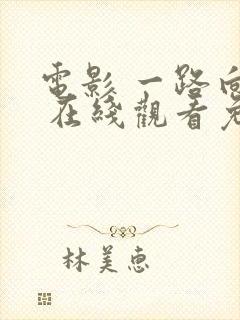 電影 一路向
在綫觀看
林美惠